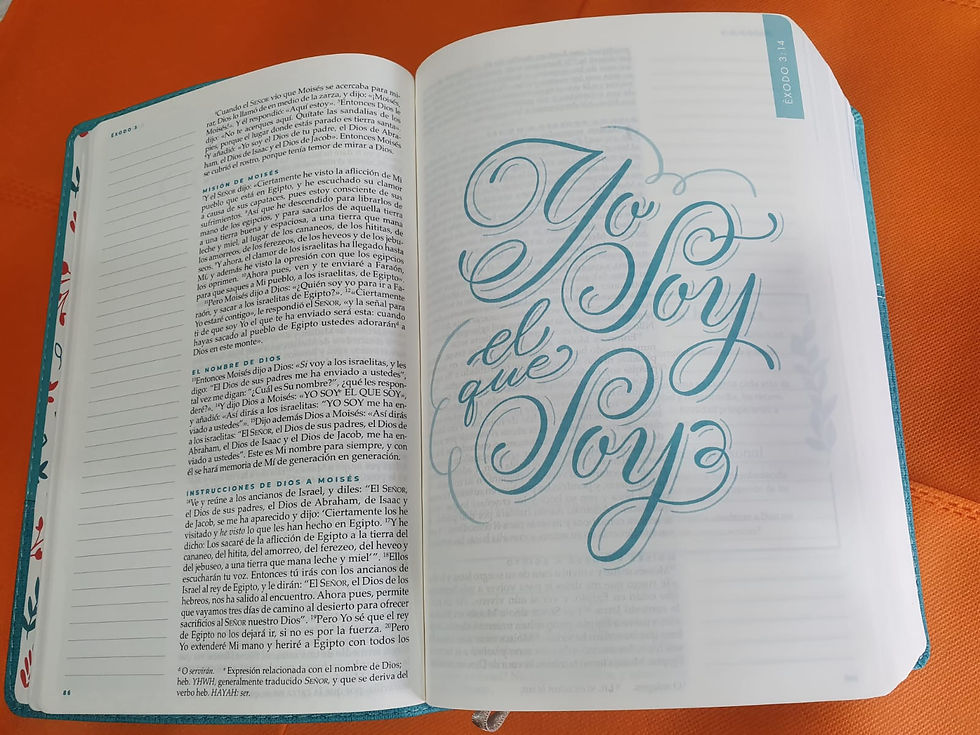 ÉXODO 3
⁴Cuando el SEÑOR vio que Moisés se acercaba para mi-
rar, Dios lo llamó de en medio de la zarza, y dijo: «¡Moisés,
Moisés!». Y él respondió: «Aquí estoy». ⁵Entonces Dios le
dijo: «No te acerques aquí. Quítate las sandalias de los
pies, porque el lugar donde estás parado es tierra santa».
⁶Y añadió: «Yo soy el Dios de tu padre, el Dios de Abra-
ham, el Dios de Isaac y el Dios de Jacob». Entonces Moisés
se cubrió el rostro, porque tenía temor de mirar a Dios.
MISIÓN DE MOISÉS
⁷Y el SEÑOR dijo: «Ciertamente he visto la aflicción de Mi
pueblo que está en Egipto, y he escuchado su clamor
a causa de sus capataces, pues estoy consciente de sus
sufrimientos. ⁸Así que he descendido para librarlos de
mano de los egipcios, y para sacarlos de aquella tierra
a una tierra buena y espaciosa, a una tierra que mana
leche y miel, al lugar de los cananeos, de los hititas, de
los amorreos, de los ferezeos, de los heveos y de los jebu-
seos. ⁹Y ahora, el clamor de los israelitas ha llegado hasta
Mí, y además he visto la opresión con que los egipcios
los oprimen. ¹⁰Ahora pues, ven y te enviaré a Faraón,
para que saques a Mi pueblo, a los israelitas, de Egipto».
¹¹Pero Moisés dijo a Dios: «¿Quién soy yo para ir a Fa-
raón, y sacar a los israelitas de Egipto?». ¹²«Ciertamente
Yo estaré contigo», le respondió el SEÑOR, «y la señal para
ti de que soy Yo el que te ha enviado será esta: cuando
hayas sacado al pueblo de Egipto ustedes adorarán ᵈ a
Dios en este monte».
EL NOMBRE DE DIOS
¹³Entonces Moisés dijo a Dios: «Si voy a los israelitas, y les
digo: "El Dios de sus padres me ha enviado a ustedes",
tal vez me digan: "¿Cuál es Su nombre?", ¿qué les respon-
deré?». ¹⁴Y dijo Dios a Moisés: «YO SOYᵉ EL QUE SOY»,
y añadió: «Así dirás a los israelitas: "YO SOY me ha en-
viado a ustedes"». ¹⁵Dijo además Dios a Moisés: «Así dirás
a los israelitas: "El SEÑOR, el Dios de sus padres, el Dios de
Abraham, el Dios de Isaac y el Dios de Jacob, me ha en-
viado a ustedes". Este es Mi nombre para siempre, y con
él se hará memoria de Mí de generación en generación.
INSTRUCCIONES DE DIOS A MOISÉS
¹⁶Ve y reúne a los ancianos de Israel, y diles: "El SEÑOR,
el Dios de sus padres, el Dios de Abraham, de Isaac y
de Jacob, se me ha aparecido y dijo: 'Ciertamente los he
visitado y he visto lo que les han hecho en Egipto. ¹⁷Y he
dicho: Los sacaré de la aflicción de Egipto a la tierra del
cananeo, del hitita, del amorreo, del ferezeo, del heveo y
del jebuseo, a una tierra que mana leche y miel'". ¹⁸Ellos
escucharán tu voz. Entonces tú irás con los ancianos de
Israel al rey de Egipto, y le dirán: "El SEÑOR, el Dios de los
hebreos, nos ha salido al encuentro. Ahora pues, permite
que vayamos tres días de camino al desierto para ofrecer
sacrificios al SEÑOR nuestro Dios". ¹⁹Pero Yo sé que el rey
de Egipto no los dejará ir, si no es por la fuerza. ²⁰Pero
Yo extenderé Mi mano y heriré a Egipto con todos los
ᵈ O servirán. ᵉ Expresión relacionada con el nombre de Dios;
heb. YHWH, generalmente traducido SEÑOR, y que se deriva del
verbo heb. HAYAH: ser.
86
ÉXODO 3:14
Yo
Soy
el
que
Soy